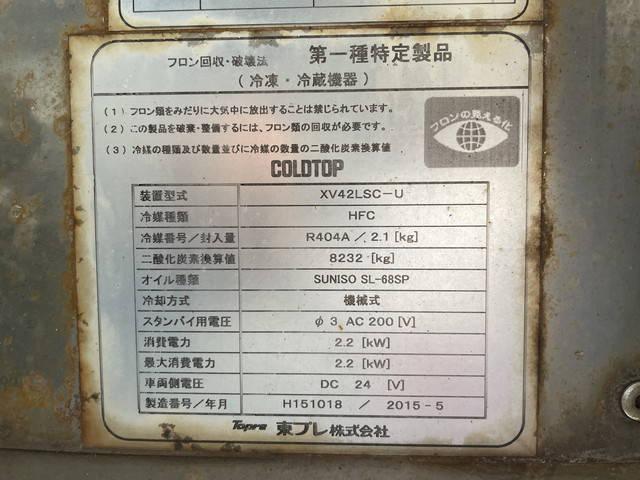 フロン回収・破壊法 第一種特定製品
（冷凍・冷蔵機器）
（１）フロン類をみだりに大気中に放出することは禁じられています。
（２）この製品を破棄・整備するには、フロン類の回収が必要です。
（３）冷媒の種類及び数量並びに冷媒の数量の二酸化炭素換算値
フロンの見える化
COLDTOP
装置型式 XV42LSC-U
冷媒種類 HFC
冷媒番号／封入量 R404A ／ 2.1 [kg]
二酸化炭素換算値 8232 [kg]
オイル種類 SUNISO SL-68SP
冷却方式 機械式
スタンバイ用電圧 φ3 AC 200 [V]
消費電力 2.2 [kW]
最大消費電力 2.2 [kW]
車両側電圧 DC 24 [V]
製造番号／年月 H151018 ／ 2015-5
Topre 東プレ株式会社